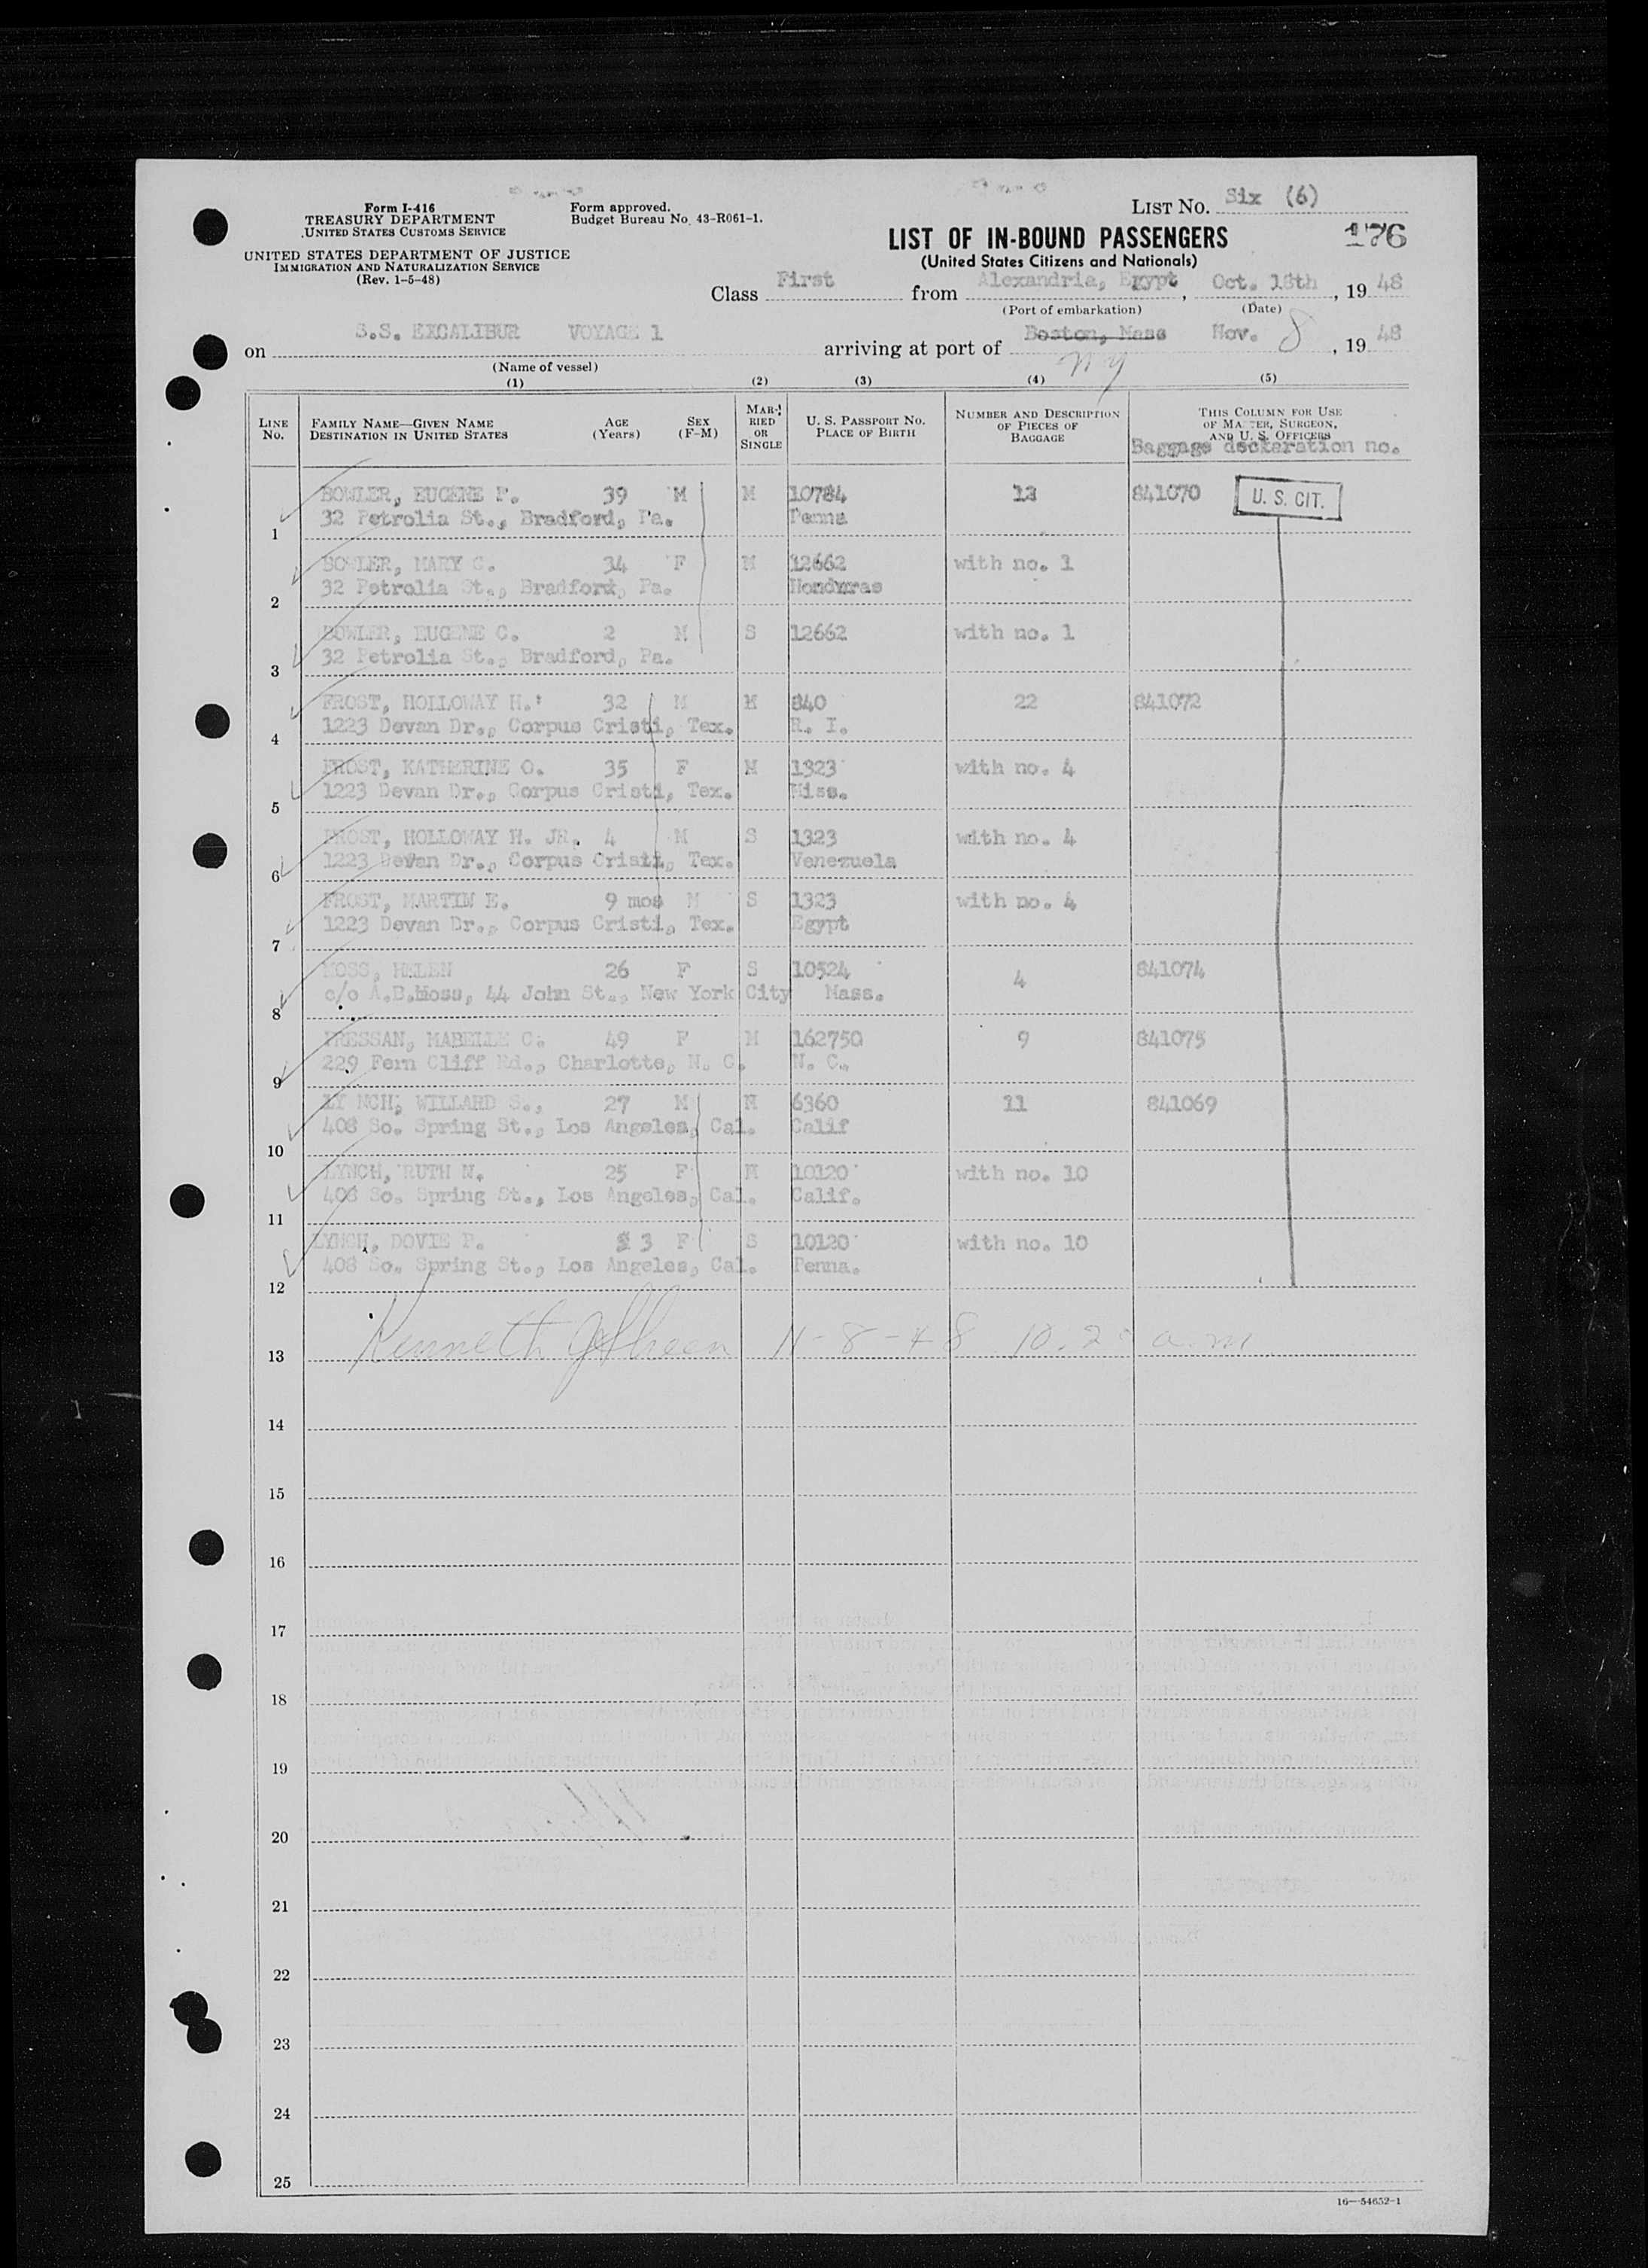 Form I-416
TREASURY DEPARTMENT
UNITED STATES CUSTOMS SERVICE
UNITED STATES DEPARTMENT OF JUSTICE
IMMIGRATION AND NATURALIZATION SERVICE
(Rev. 1-5-48)
Form approved.
Budget Bureau No. 43-R061-1.
LIST NO. Six (6)
LIST OF IN-BOUND PASSENGERS 176
(United States Citizens and Nationals)
Class First from Alexandria, Egypt, Oct. 18th, 19 48
(Port of embarkation) (Date)
on S.S. EXCALIBUR VOYAGE 1 arriving at port of Boston, Mass Nov. 8, 19 48
(Name of vessel) NY
(1) (2) (3) (4) (5)
LINE NO. FAMILY NAME—GIVEN NAME DESTINATION IN UNITED STATES AGE (Years) SEX (F-M) MARRIED OR SINGLE U. S. PASSPORT NO. PLACE OF BIRTH NUMBER AND DESCRIPTION OF PIECES OF BAGGAGE THIS COLUMN FOR USE OF MASTER, SURGEON, AND U. S. OFFICERS
Baggage declaration no.
BOWLER, EUGENE P. 39 M M 10784 13 841070 U. S. CIT.
1 32 Petrolia St., Bradford, Pa. Penna
BOWLER, MARY C. 34 F M 12662 with no. 1
2 32 Petrolia St., Bradford, Pa. Honduras
BOWLER, EUGENE C. 2 M S 12662 with no. 1
3 32 Petrolia St., Bradford, Pa.
FROST, HOLLOWAY H. 32 M M 840 22 841072
4 1223 Devan Dr., Corpus Cristi, Tex. R. I.
FROST, KATHERINE O. 35 F M 1323 with no. 4
5 1223 Devan Dr., Corpus Cristi, Tex. Miss.
FROST, HOLLOWAY H. JR. 4 M S 1323 with no. 4
6 1223 Devan Dr., Corpus Cristi, Tex. Venezuela
FROST, MARTIN E. 9 mos M S 1323 with no. 4
7 1223 Devan Dr., Corpus Cristi, Tex. Egypt
MOSS, HELEN 26 F S 10524 4 841074
8 c/o A.B.Moss, 44 John St., New York City Mass.
TRESSAN, MABELLE C. 49 F M 162750 9 841075
9 229 Fern Cliff Rd., Charlotte, N. C. N. C.
LY NCH, WILLARD S., 27 M M 6360 11 841069
10 408 So. Spring St., Los Angeles, Cal. Calif
LYNCH, RUTH N. 25 F M 10120 with no. 10
11 408 So. Spring St., Los Angeles, Cal. Calif.
LYNCH, DOVIE P. 3 F S 10120 with no. 10
12 408 So. Spring St., Los Angeles, Cal. Penna.
13 Kenneth 11-8-48 a.m.
14
15
16
17
18
19
20
21
22
23
24
25
16—54652-1